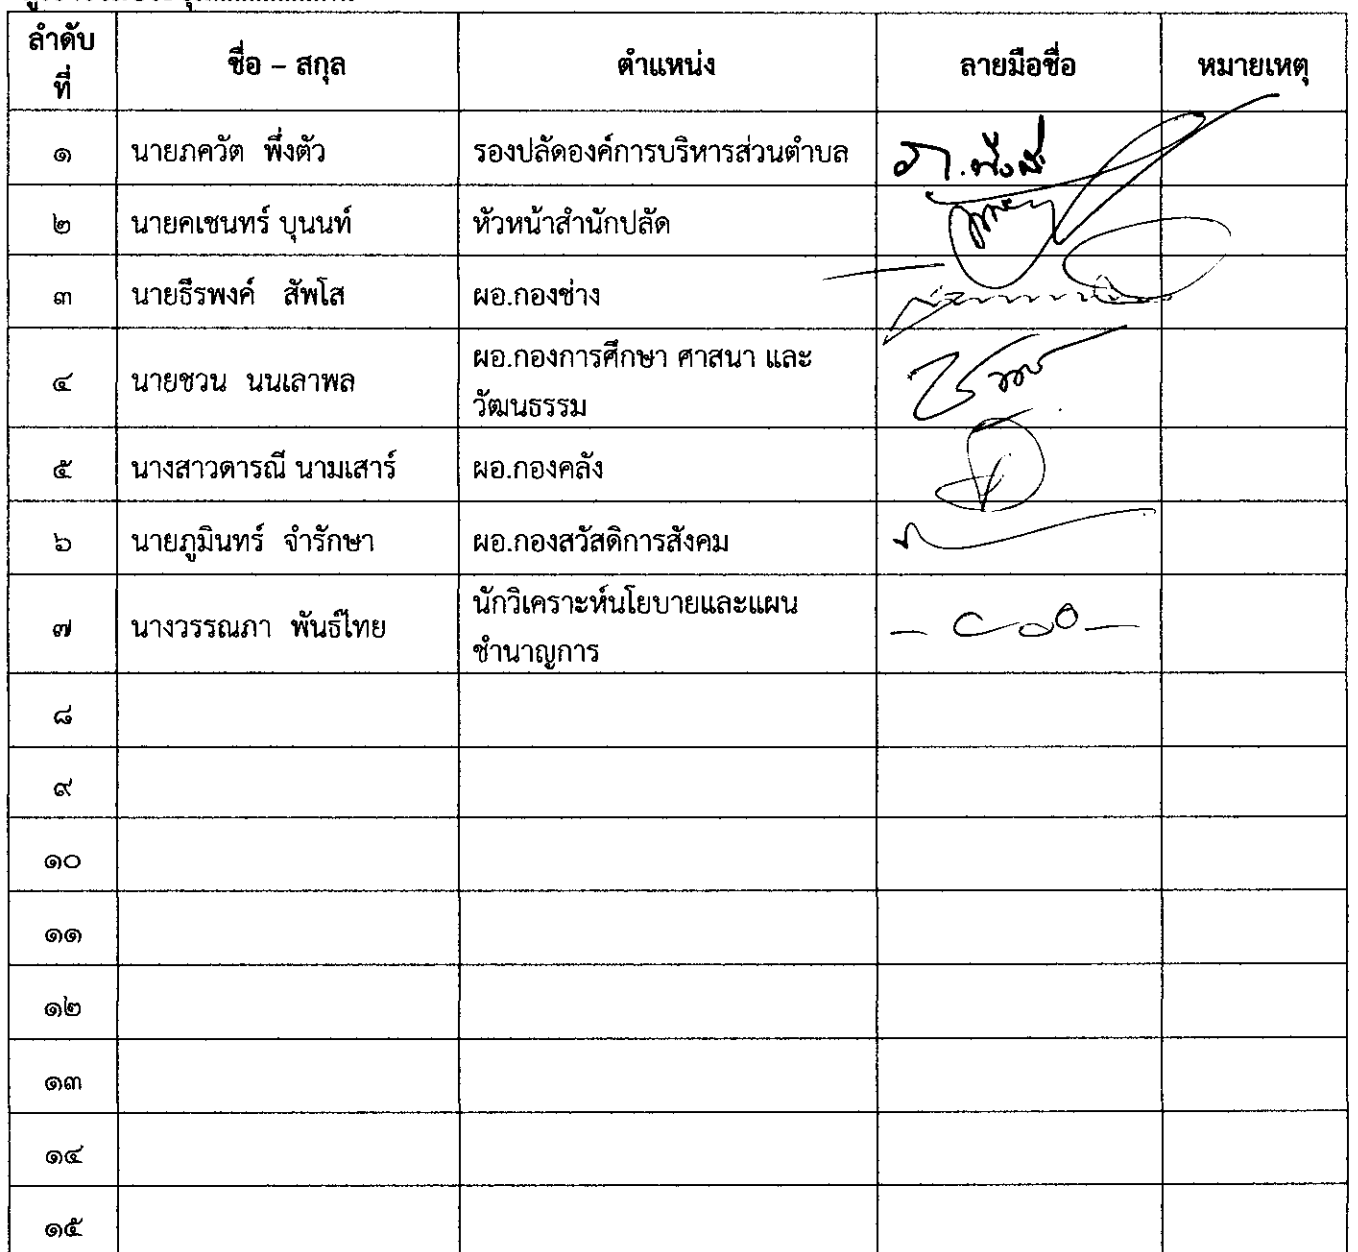 ลำดับที่ ชื่อ – สกุล ตำแหน่ง ลายมือชื่อ หมายเหตุ
๑ นายภควัต พึ่งตัว รองปลัดองค์การบริหารส่วนตำบล
๒ นายคเชนทร์ บุนนท์ หัวหน้าสำนักปลัด
๓ นายธีรพงค์ สัพโส ผอ.กองช่าง
๔ นายชวน นนเลาพล ผอ.กองการศึกษา ศาสนา และ
วัฒนธรรม
๕ นางสาวดารณี นามเสาร์ ผอ.กองคลัง
๖ นายภูมินทร์ จำรักษา ผอ.กองสวัสดิการสังคม
๗ นางวรรณภา พันธ์ไทย นักวิเคราะห์นโยบายและแผน
ชำนาญการ
๘
๙
๑๐
๑๑
๑๒
๑๓
๑๔
๑๕